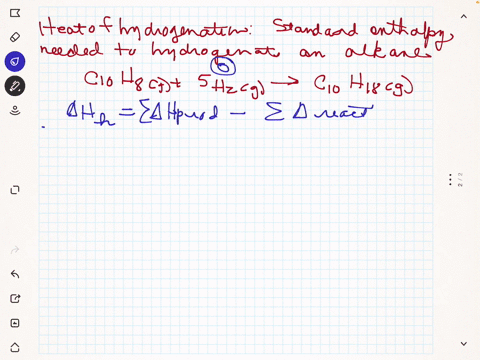 Heat of hydrogenation: Standard enthalpy
needed to hydrogenat an alkane
6
C10 H8(g) + 5 H2(g) → C10 H18(g)
ΔHh = ΣΔHprod - Σ Δ react
2 / 2